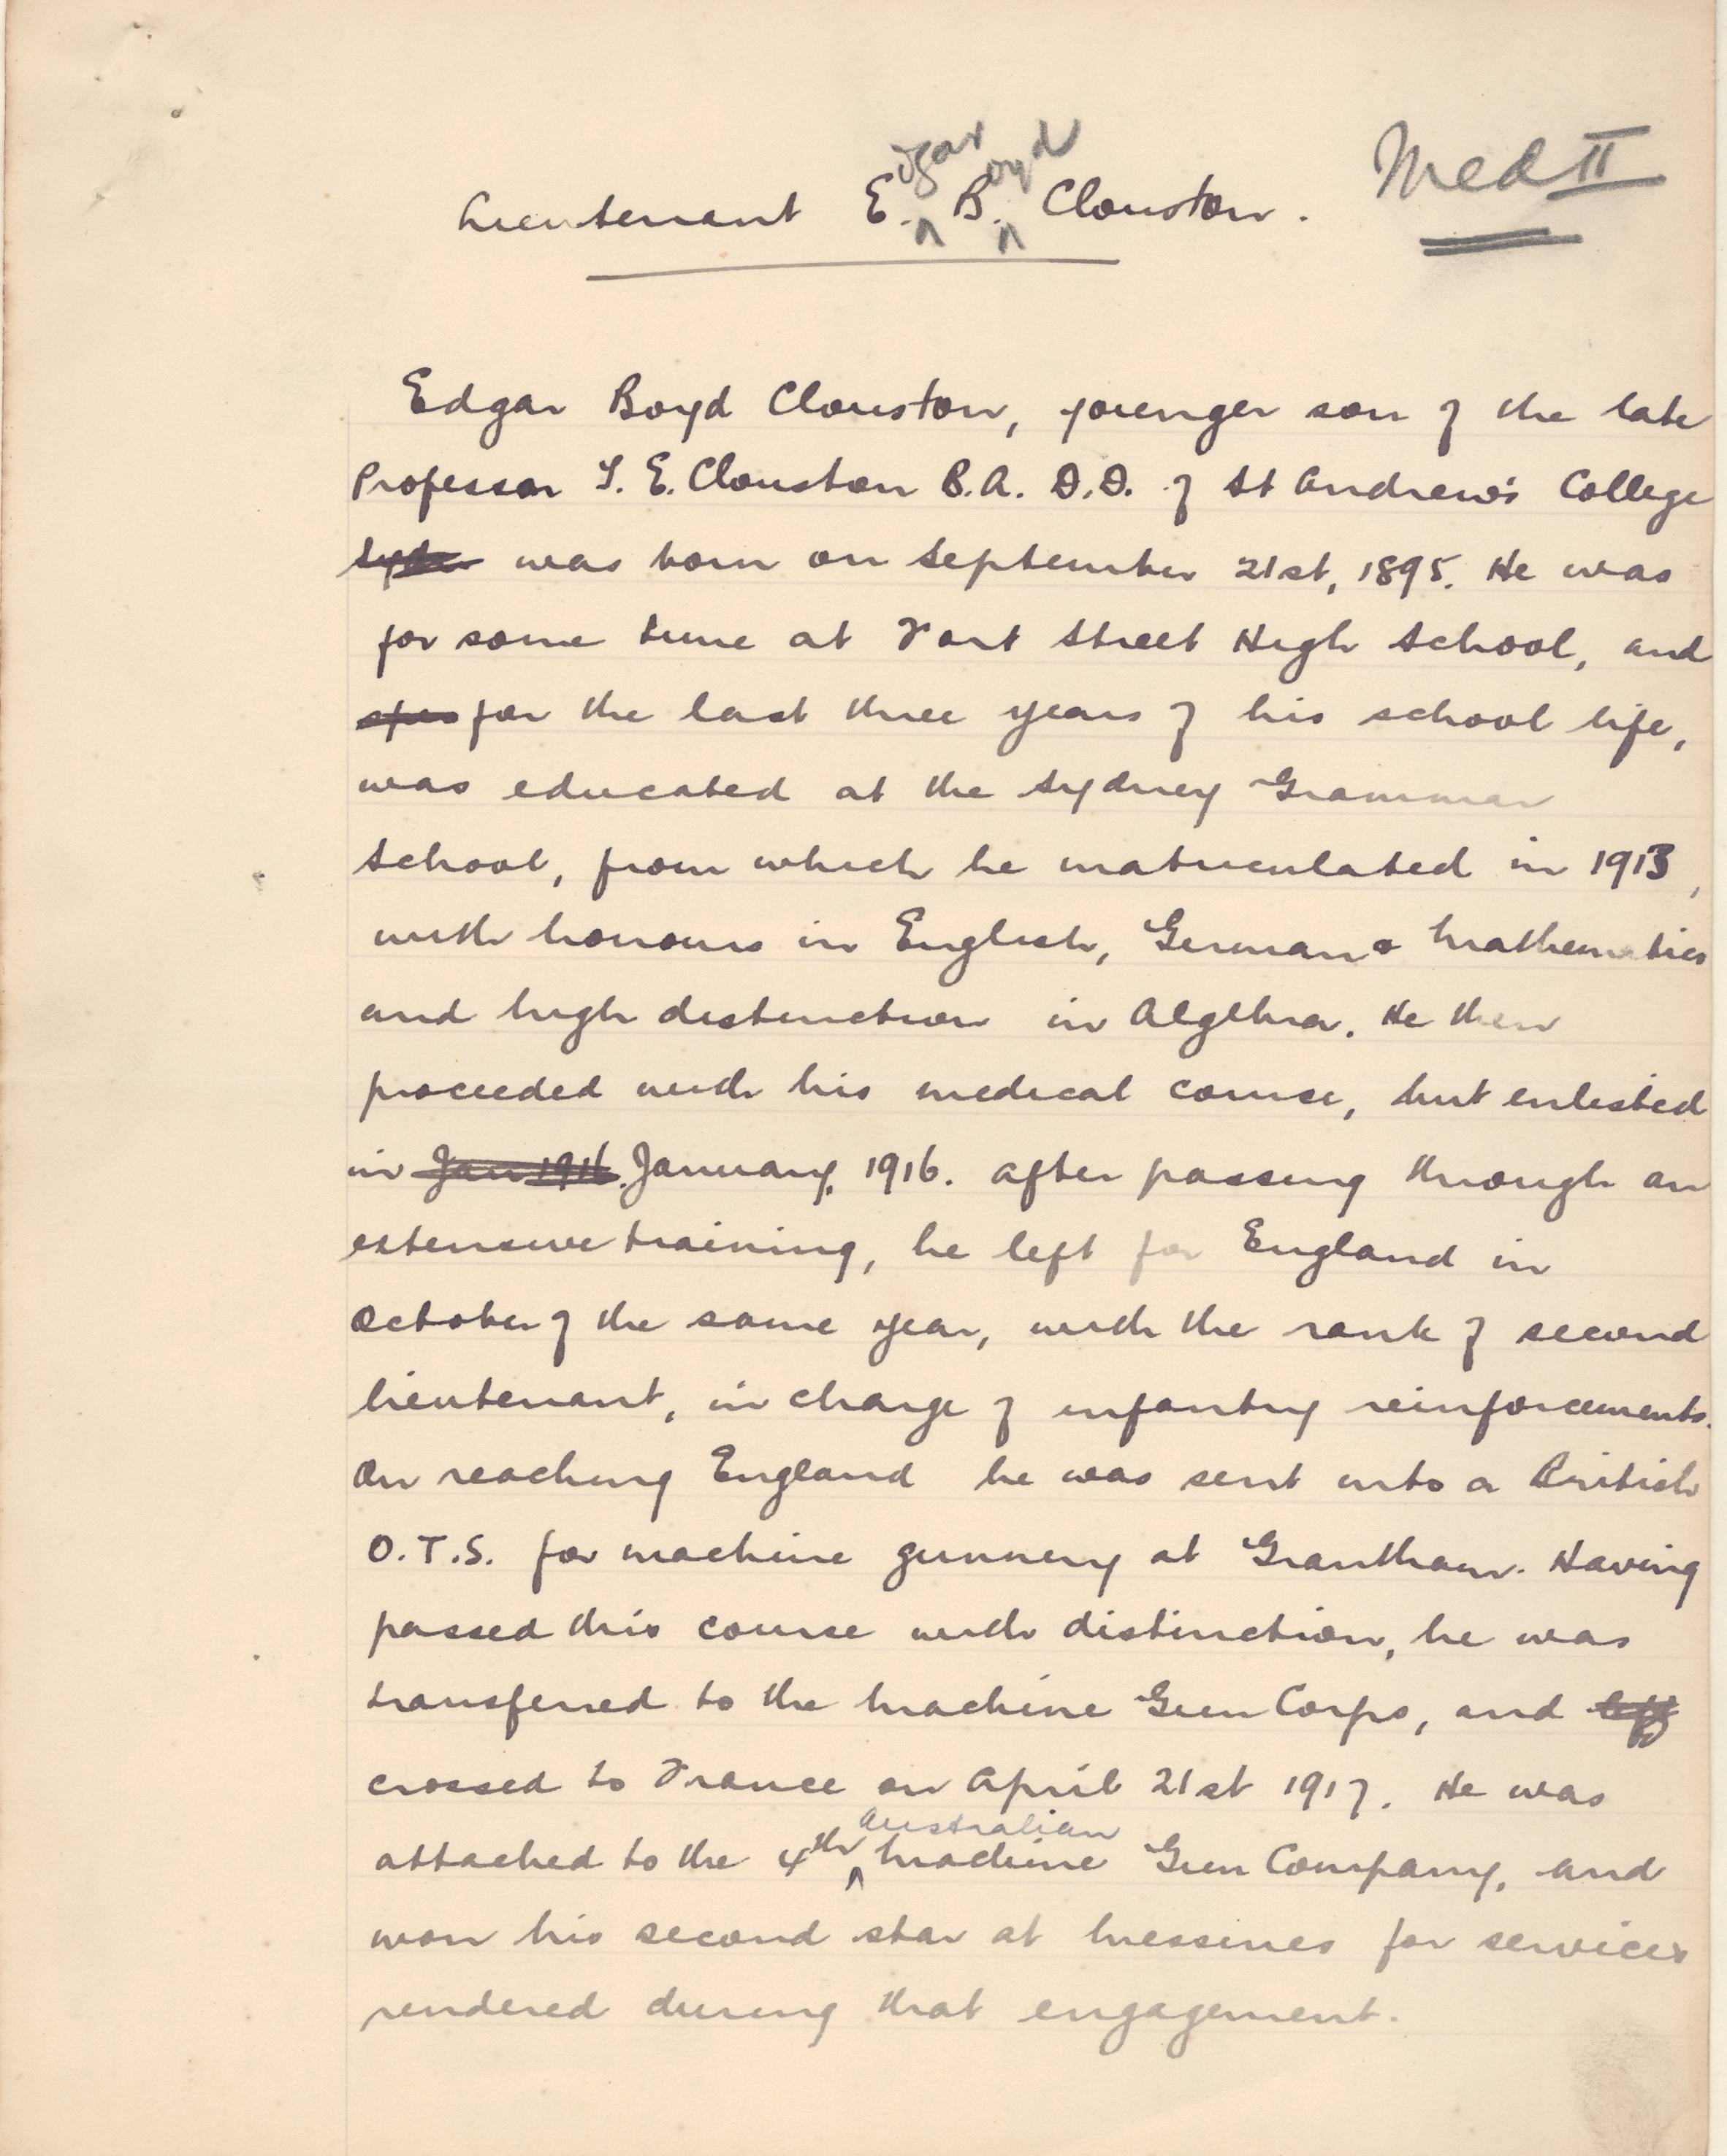 Lieutenant E.dgar B.oyd Clouston.
Med II
Edgar Boyd Clouston, younger son of the late
Professor T. E. Clouston B.A. D.D. of St Andrew's College
was born on September 21st, 1895. He was
for some time at Fort Street High School, and
for the last three years of his school life,
was educated at the Sydney Grammar
School, from which he matriculated in 1913,
with honours in English, German & Mathematics
and high distinction in Algebra. He then
proceeded with his medical course, but enlisted
in Jan 1916. January, 1916. After passing through an
extensive training, he left for England in
October of the same year, with the rank of second
lieutenant, in charge of infantry reinforcements.
On reaching England he was sent into a British
O.T.S. for machine gunnery at Grantham. Having
passed this course with distinction, he was
transferred to the Machine Gun Corps, and left
crossed to France on April 21st 1917. He was
attached to the 4th Australian Machine Gun Company, and
won his second star at Messines for services
rendered during that engagement.